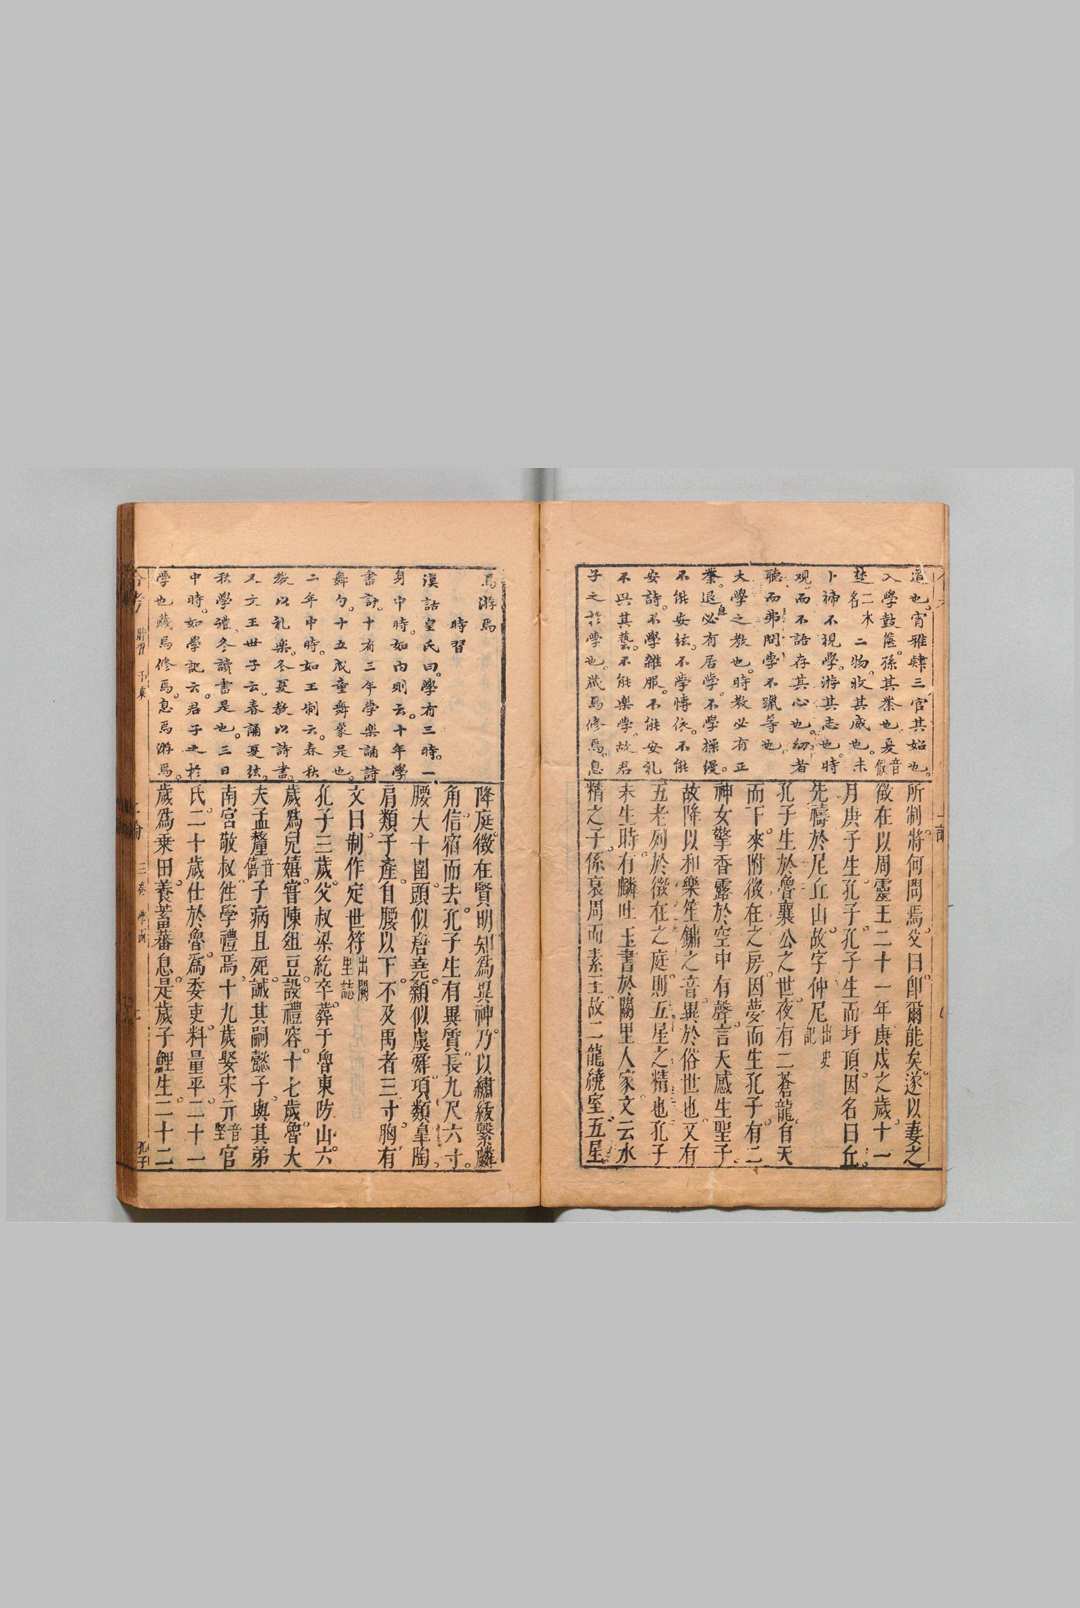 道也。宵雅肄三。官其始也。
入學鼓篋。孫其業也。夏音
楚二木名二物。收其威也。未
卜禘不視學。游其志也。時
觀而不語。存其心也。幼者
聽而弗問。學不躐等也。
大學之教也。時教必有正
業。退息必有居學。不學操縵。
不能安絃。不學博依。不能
安詩。不學雜服。不能安礼
不興其藝。不能樂學。故君
子之於學也。藏焉修焉。息
所制將何問焉父曰即爾能矣遂以妻之
徵在以周靈王二十一年庚戌之歲十一
月庚子生孔子孔子生而圩頂因名曰丘
先禱於尼丘山故字仲尼出史記
孔子生於魯襄公之世夜有二蒼龍自天
而下來附徵在之房因夢而生孔子有二
神女擎香露於空中有聲言天感生聖子
故降以和樂笙鏞之音異於俗世也又有
五老列於徵在之庭則五星之精也孔子
未生時有麟吐玉書於闕里人家文云水
精之子係衰周而素王故二龍繞室五星
焉游焉
時習
漢詁皇氏曰。學有三時。一
身中時。如內則云。十年學
書計。十有三年學樂誦詩
舞勺。十五成童舞象是也。
二年中時。如王制云。春秋
教以礼樂。冬夏教以詩書。
又文王世子云。春誦夏弦。
秋學禮。冬讀書是也。三曰
中時。如學記云。君子之於
學也藏焉修焉。息焉游焉。
降庭徵在賢明知爲異神乃以繡紱繫麟
角信宿而去孔子生有異質長九尺六寸
腰大十圍頭似唐堯顙似虞舜項類臯陶
肩類子產自腰以下不及禹者三寸胸有
文曰制作定世符出闕里誌
孔子三歲父叔梁紇卒葬于魯東防山六
歲爲兒嬉甞陳俎豆設禮容十七歲魯大
夫孟釐音僖子病且死誡其嗣懿子與其弟
南宮敬叔徃學禮焉十九歲娶宋亓音官
氏二十歲仕於魯爲委吏料量平二十一
歲爲乗田養蓄蕃息是歲子鯉生二十二